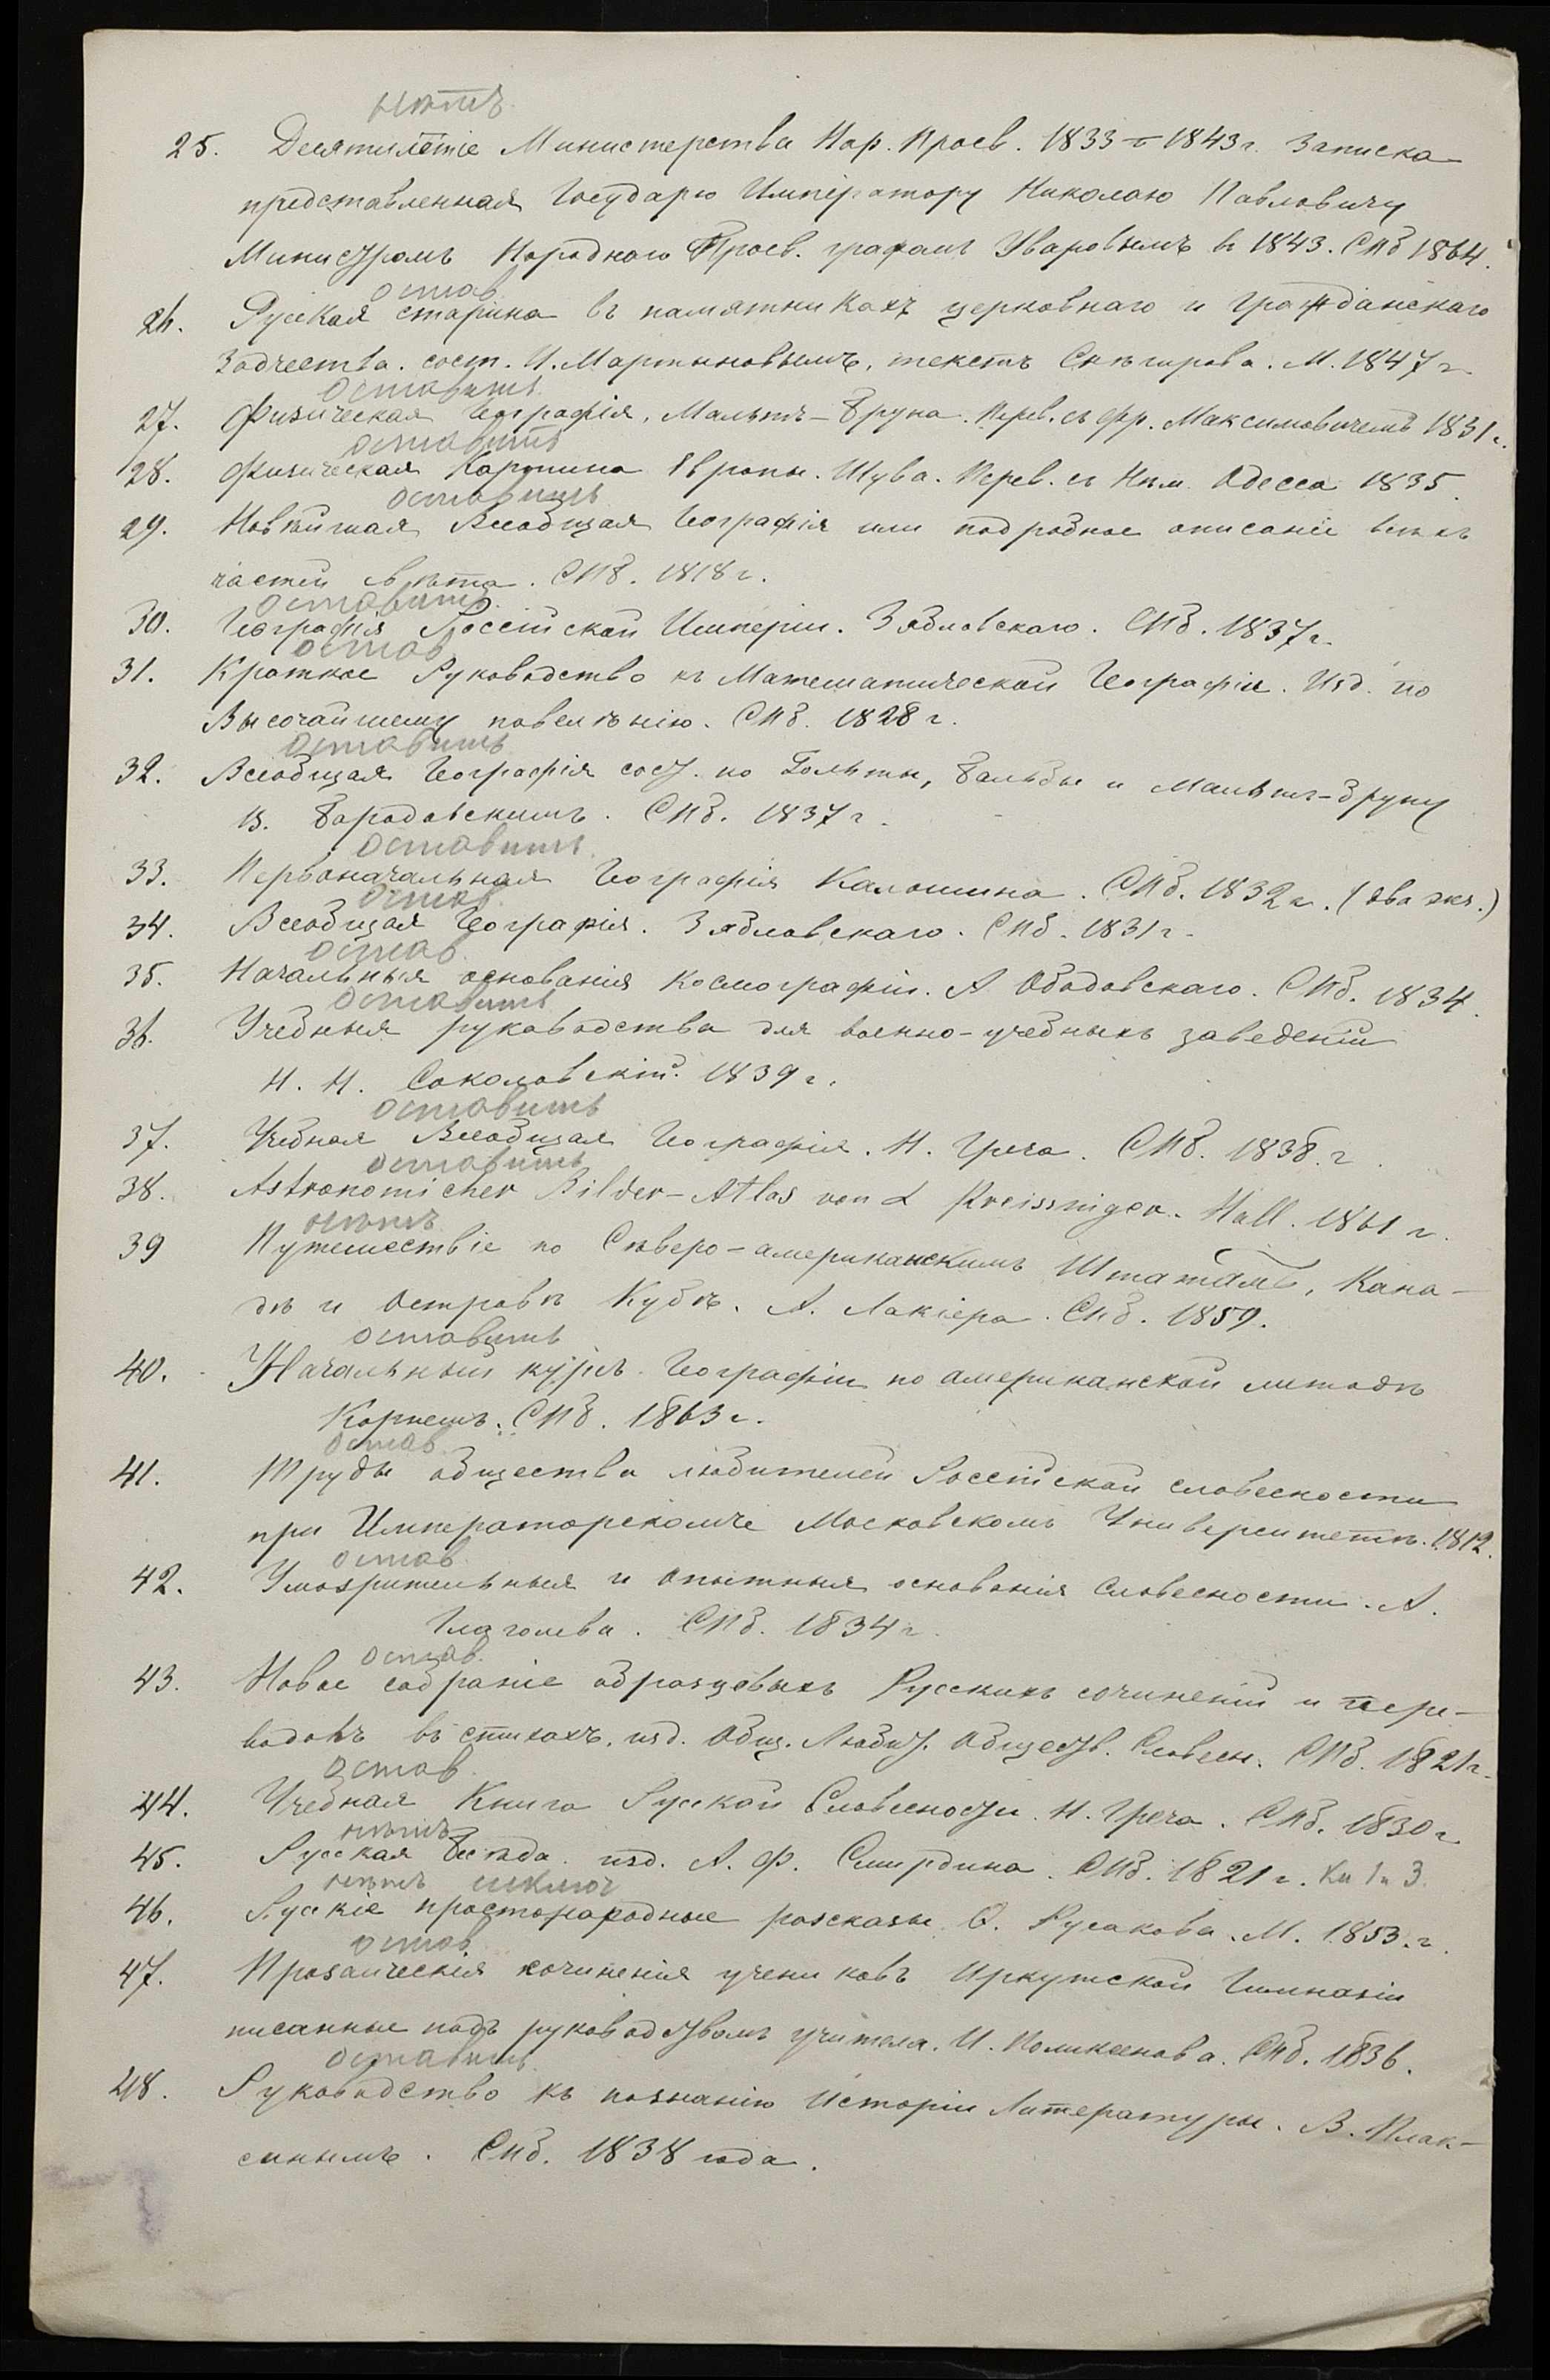 нѣтъ
25. Десятилѣтіе Министерства Нар. Просв. 1833-1843 г. Записка
представленная Государю Императору Николаю Павловичу
Министромъ Народнаго Просв. графомъ Уваровымъ въ 1843. СПб 1864.
остав
26. Русская старина въ памятникахъ церковнаго и гражданскаго
Зодчества. сост. И. Мартыновымъ, текстъ Снѣгирева. М. 1847 г.
Оставить
27. Физическая Географія, Мальтъ-Бруна. Перев. съ фр. Максимовичемъ 1831 г.
оставить
28. Физическая Картина Европы. Шува. Перев. съ Нѣм. Одесса 1835.
оставить
29. Новѣйшая Всеобщая Географія или подробное описаніе всѣхъ
частей свѣта. СПб. 1818 г.
оставить
30. Географія Россійской Имперіи. Зябловскаго. СПб. 1837 г.
остав
31. Краткое Руководство къ Математической Географіи. Изд. по
Высочайшему повелѣнію. СПб. 1828 г.
оставить
32. Всеобщая Географія сост. по Гольты, Бальбы и Мальтъ-Бруну
В. Бородовскимъ. СПб. 1837 г.
оставить
33. Первоначальная Географія Калошина. СПб. 1832 г. (два экз.)
остав
34. Всеобщая Географія. Зябловскаго. СПб. 1831 г.
остав.
35. Начальныя основанія Космографіи. А Ободовскаго. СПб. 1834.
Оставить
36. Учебныя руководства для военно-учебныхъ заведеній
Н. Н. Соколовскій. 1839 г.
оставить
37. Учебная Всеобщая Географія. Н. Греча. СПб. 1838. г.
оставить
38. Astronomicher Bilder-Atlas von L Preissniger. Hall. 1861 г.
нѣтъ
39 Путешествіе по Сѣверо-американскимъ Штатамъ, Кана-
дѣ и Островѣ Кубѣ. А. Лакіера. СПб. 1859.
оставить
40. Начальный курсъ Географіи по американской методѣ
Корнель. СПб. 1863 г.
остав
41. Труды общества любителей Россійской словесности
при Императорскомъ Московскомъ Университетѣ. 1812.
остав
42. Умозрительныя и опытныя основанія Словесности. А.
Глаголева. СПб. 1834 г.
остав.
43. Новое собраніе образцовыхъ Русскихъ сочиненій и пере-
водовъ въ стихахъ, изд. Общ. Любит. Обществ. Словесн. СПб. 1821 г.
остав.
44. Учебная Книга Русской Словесности. Н. Греча. СПб. 1830 г.
нѣтъ
45. Русская Бесѣда. изд. А. Ф. Смирдина. СПб. 1821 г. Кн 1 и 3.
нѣтъ исключ
46. Русскіе простонародные разсказы. О. Русакова. М. 1853. г.
остав
47. Прозаическія сочиненія учениковъ Иркутской Гимназіи
писанные подъ руководствомъ учителя. И. Поликсенова. СПб. 1836.
Оставить.
48. Руководство къ познанію Исторіи Литературы. В. Плак-
синымъ. Спб. 1838 года.